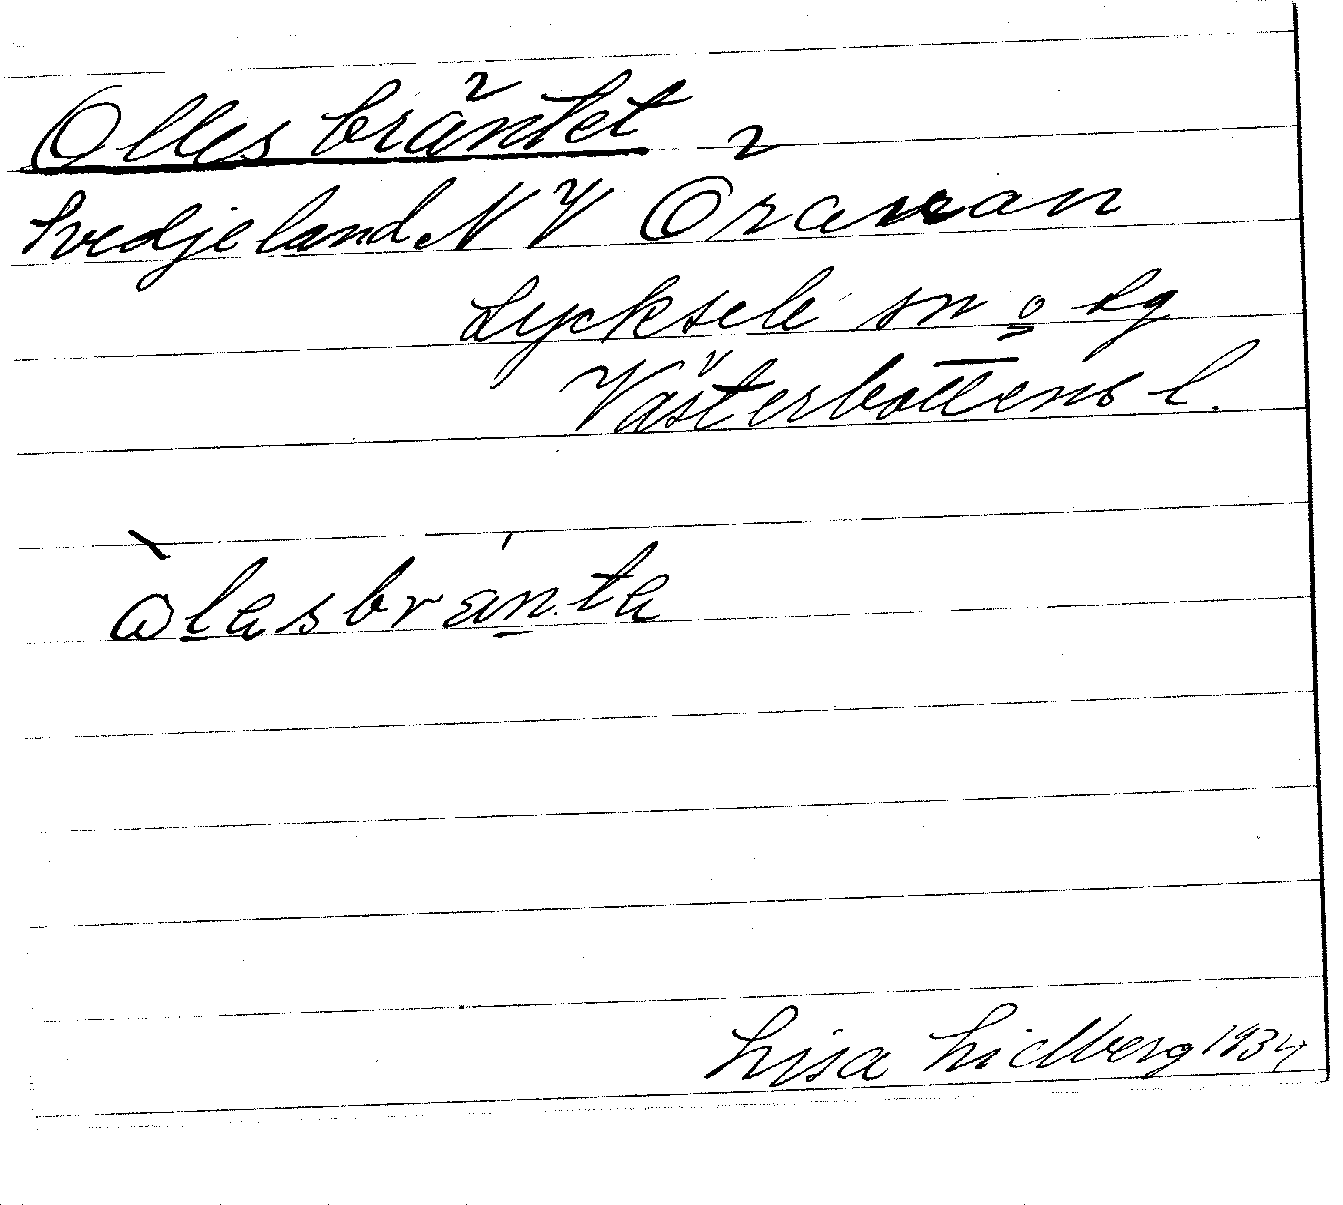 Ollesbräntet
Svedjeland NV Öravan
Lycksele sn o lg
Västerbottens l.
òlasbránta
Lisa Lidberg 1934